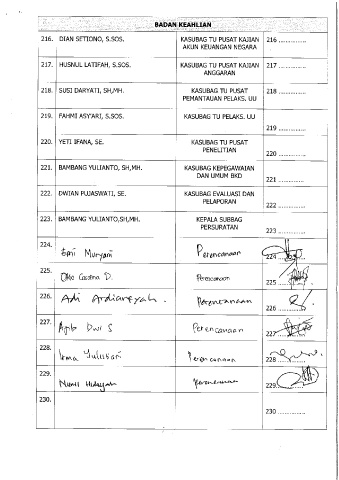 BADAN KEAHLIAN
216. DIAN SETIONO, S.SOS. KASUBAG TU PUSAT KAJIAN AKUN KEUANGAN NEGARA 216 ..............
217. HUSNUL LATIFAH, S.SOS. KASUBAG TU PUSAT KAJIAN ANGGARAN 217 ..............
218. SUSI DARYATI, SH,MH. KASUBAG TU PUSAT PEMANTAUAN PELAKS. UU 218 ..............
219. FAHMI ASY'ARI, S.SOS. KASUBAG TU PELAKS. UU 219 ..............
220. YETI IFANA, SE. KASUBAG TU PUSAT PENELITIAN 220 ..............
221. BAMBANG YULIANTO, SH,MH. KASUBAG KEPEGAWAIAN DAN UMUM BKD 221 ..............
222. DWIAN PUJASWATI, SE. KASUBAG EVALUASI DAN PELAPORAN 222 ..............
223. BAMBANG YULIANTO,SH,MH. KEPALA SUBBAG PERSURATAN 223 ..............
224. Muryani Perencanaan 224
225. D. Perencanaan 225
226. Adi Ardiansyah. Perencanaan 226
227. Dwi S Perencanaan 227
228. Irma Yulisari Perencanaan 228
229. Hidayah Perencanaan 229
230. 230 ..............